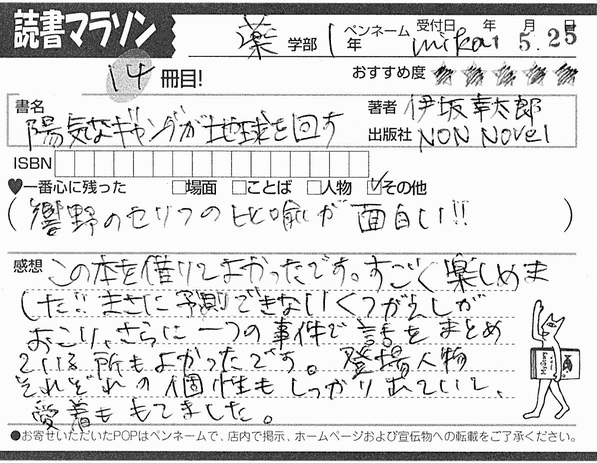 読書マラソン
薬 学部 1年 ペンネーム mikai 受付日 年 月 日 5.25
14冊目!
おすすめ度 ★★★★★
書名 陽気なギャングが地球を回す
著者 伊坂幸太郎
出版社 NON NOVEL
ISBN
♥一番心に残った □場面 □ことば □人物 ☑その他
(響野のセリフの比喩が面白い!!)
感想 この本を借りてよかったです。すごく楽しめま
した!! まさに予測できないくつがえしが
おこり、さらに一つの事件で話をまとめ
ている所もよかったです。登場人物
それぞれの個性もしっかり出ていて、
愛着ももてました。
●お寄せいただいたPOPはペンネームで、店内で掲示、ホームページおよび宣伝物への転載をご了承ください。